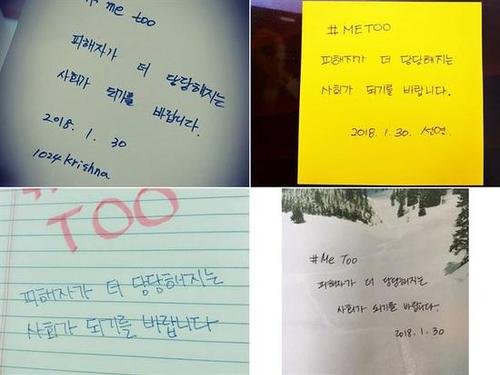 # me too
피해자가 더 당당해지는
사회가 되기를 바랍니다.
2018. 1. 30
1024 Krishna
# METOO
피해자가 더 당당해지는
사회가 되기를 바랍니다.
2018. 1. 30. 선영.
TOO
피해자가 더 당당해지는
사회가 되기를 바랍니다
#Me Too
피해자가 더 당당해지는
사회가 되기를 바랍니다.
2018. 1. 30